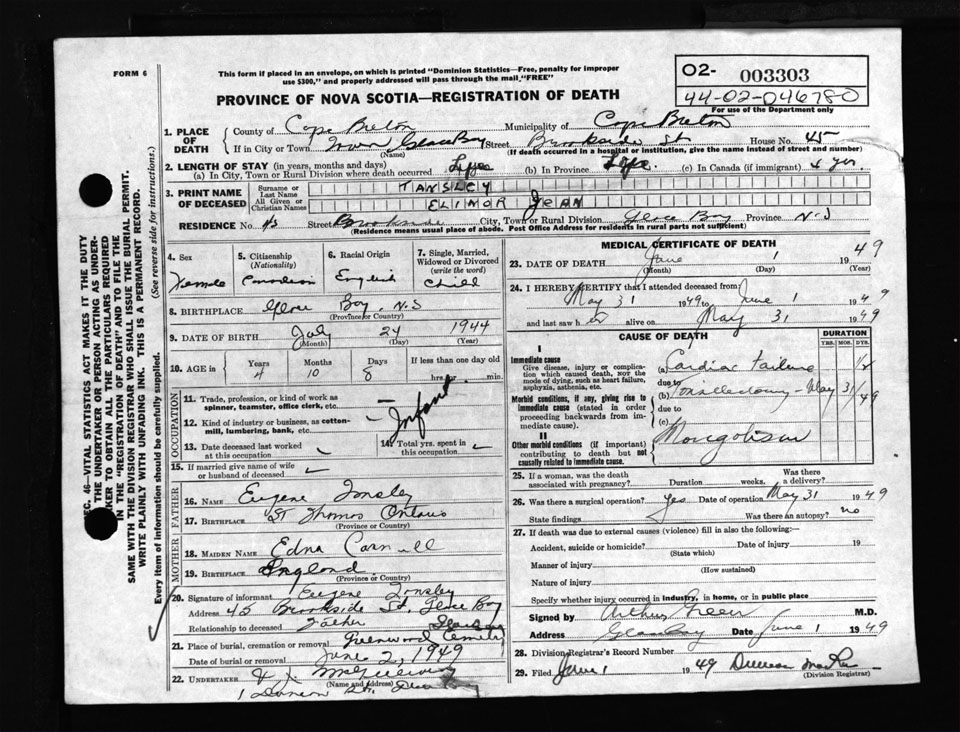 FORM 6
This form if placed in an envelope, on which is printed "Dominion Statistics—Free, penalty for improper
use $300," and properly addressed will pass through the mail "FREE"
PROVINCE OF NOVA SCOTIA—REGISTRATION OF DEATH
O2- 003303
44-02-046780
For use of the Department only
SEC. 46—VITAL STATISTICS ACT MAKES IT THE DUTY
OF THE UNDERTAKER OR PERSON ACTING AS UNDER-
TAKER TO OBTAIN ALL THE PARTICULARS REQUIRED
IN THE "REGISTRATION OF DEATH" AND TO FILE THE
SAME WITH THE DIVISION REGISTRAR WHO SHALL ISSUE THE BURIAL PERMIT.
WRITE PLAINLY WITH UNFADING INK. THIS IS A PERMANENT RECORD.
Every item of information should be carefully supplied. (See reverse side for instructions.)
1. PLACE OF DEATH
County of Cape Breton Municipality of Cape Breton
If in City or Town Glace Bay Street Brookside St House No. 45
(Name) (If death occurred in a hospital or institution, give the name instead of street and number)
2. LENGTH OF STAY (in years, months and days)
(a) In City, Town or Rural Division where death occurred Life (b) In Province Life (c) In Canada (if immigrant) 4 yrs.
3. PRINT NAME OF DECEASED
Surname or Last Name TANSLEY
All Given or Christian Names ELINOR JEAN
RESIDENCE No. 45 Street Brookside City, Town or Rural Division Glace Bay Province N-S
(Residence means usual place of abode. Post Office Address for residents in rural parts not sufficient)
4. Sex
Female
5. Citizenship
(Nationality)
Canadian
6. Racial Origin
English
7. Single, Married,
Widowed or Divorced
(write the word)
Child
8. BIRTHPLACE Glace Bay N.S
(Province or Country)
9. DATE OF BIRTH July 24 1944
(Month) (Day) (Year)
10. AGE in
Years Months Days If less than one day old
4 10 8 hrs. or min.
OCCUPATION
11. Trade, profession, or kind of work as
spinner, teamster, office clerk, etc. —
12. Kind of industry or business, as cotton-
mill, lumbering, bank, etc.
Infant
13. Date deceased last worked
at this occupation
14. Total yrs. spent in
this occupation
15. If married give name of wife
or husband of deceased
FATHER
16. NAME Eugene Tansley
17. BIRTHPLACE St Thomas Ontario
(Province or Country)
MOTHER
18. MAIDEN NAME Edna
19. BIRTHPLACE England
(Province or Country)
20. Signature of informant Eugene Tansley
Address 45 Brookside St. Glace Bay
Relationship to deceased Father
21. Place of burial, cremation or removal Greenwood Cemetery
Date of burial or removal June 2, 1949
22. UNDERTAKER
(Name and Address)
Glace Bay
MEDICAL CERTIFICATE OF DEATH
23. DATE OF DEATH June 1 1949
(Month) (Day) (Year)
24. I HEREBY CERTIFY that I attended deceased from:
May 31 1949 to June 1 1949
and last saw her alive on May 31 1949
CAUSE OF DEATH
DURATION
YRS. MOS. DYS.
I
Immediate cause
Give disease, injury or complica-
tion which caused death, NOT the
mode of dying, such as heart failure,
asphyxia, asthenia, etc.
(a) Cardiac Failure 1/2
due to
Morbid conditions, if any, giving rise to
immediate cause (stated in order
proceeding backwards from im-
mediate cause).
(b) Tonsillectomy May 31/49
due to
(c)
II
Other morbid conditions (if important)
contributing to death but not
causally related to immediate cause.
Mongolism
25. If a woman, was the death
associated with pregnancy? Duration weeks. Was there
a delivery?
26. Was there a surgical operation? yes Date of operation May 31 1949
State findings Was there an autopsy? no
27. If death was due to external causes (violence) fill in also the following:—
Accident, suicide or homicide? Date of injury 19
(State which)
Manner of injury
(How sustained)
Nature of injury
Specify whether injury occurred in industry, in home, or in public place
Signed by Arthur Green M.D.
Address Glace Bay Date June 1 1949
28. Division Registrar's Record Number
29. Filed June 1 1949 Duncan
(Division Registrar)